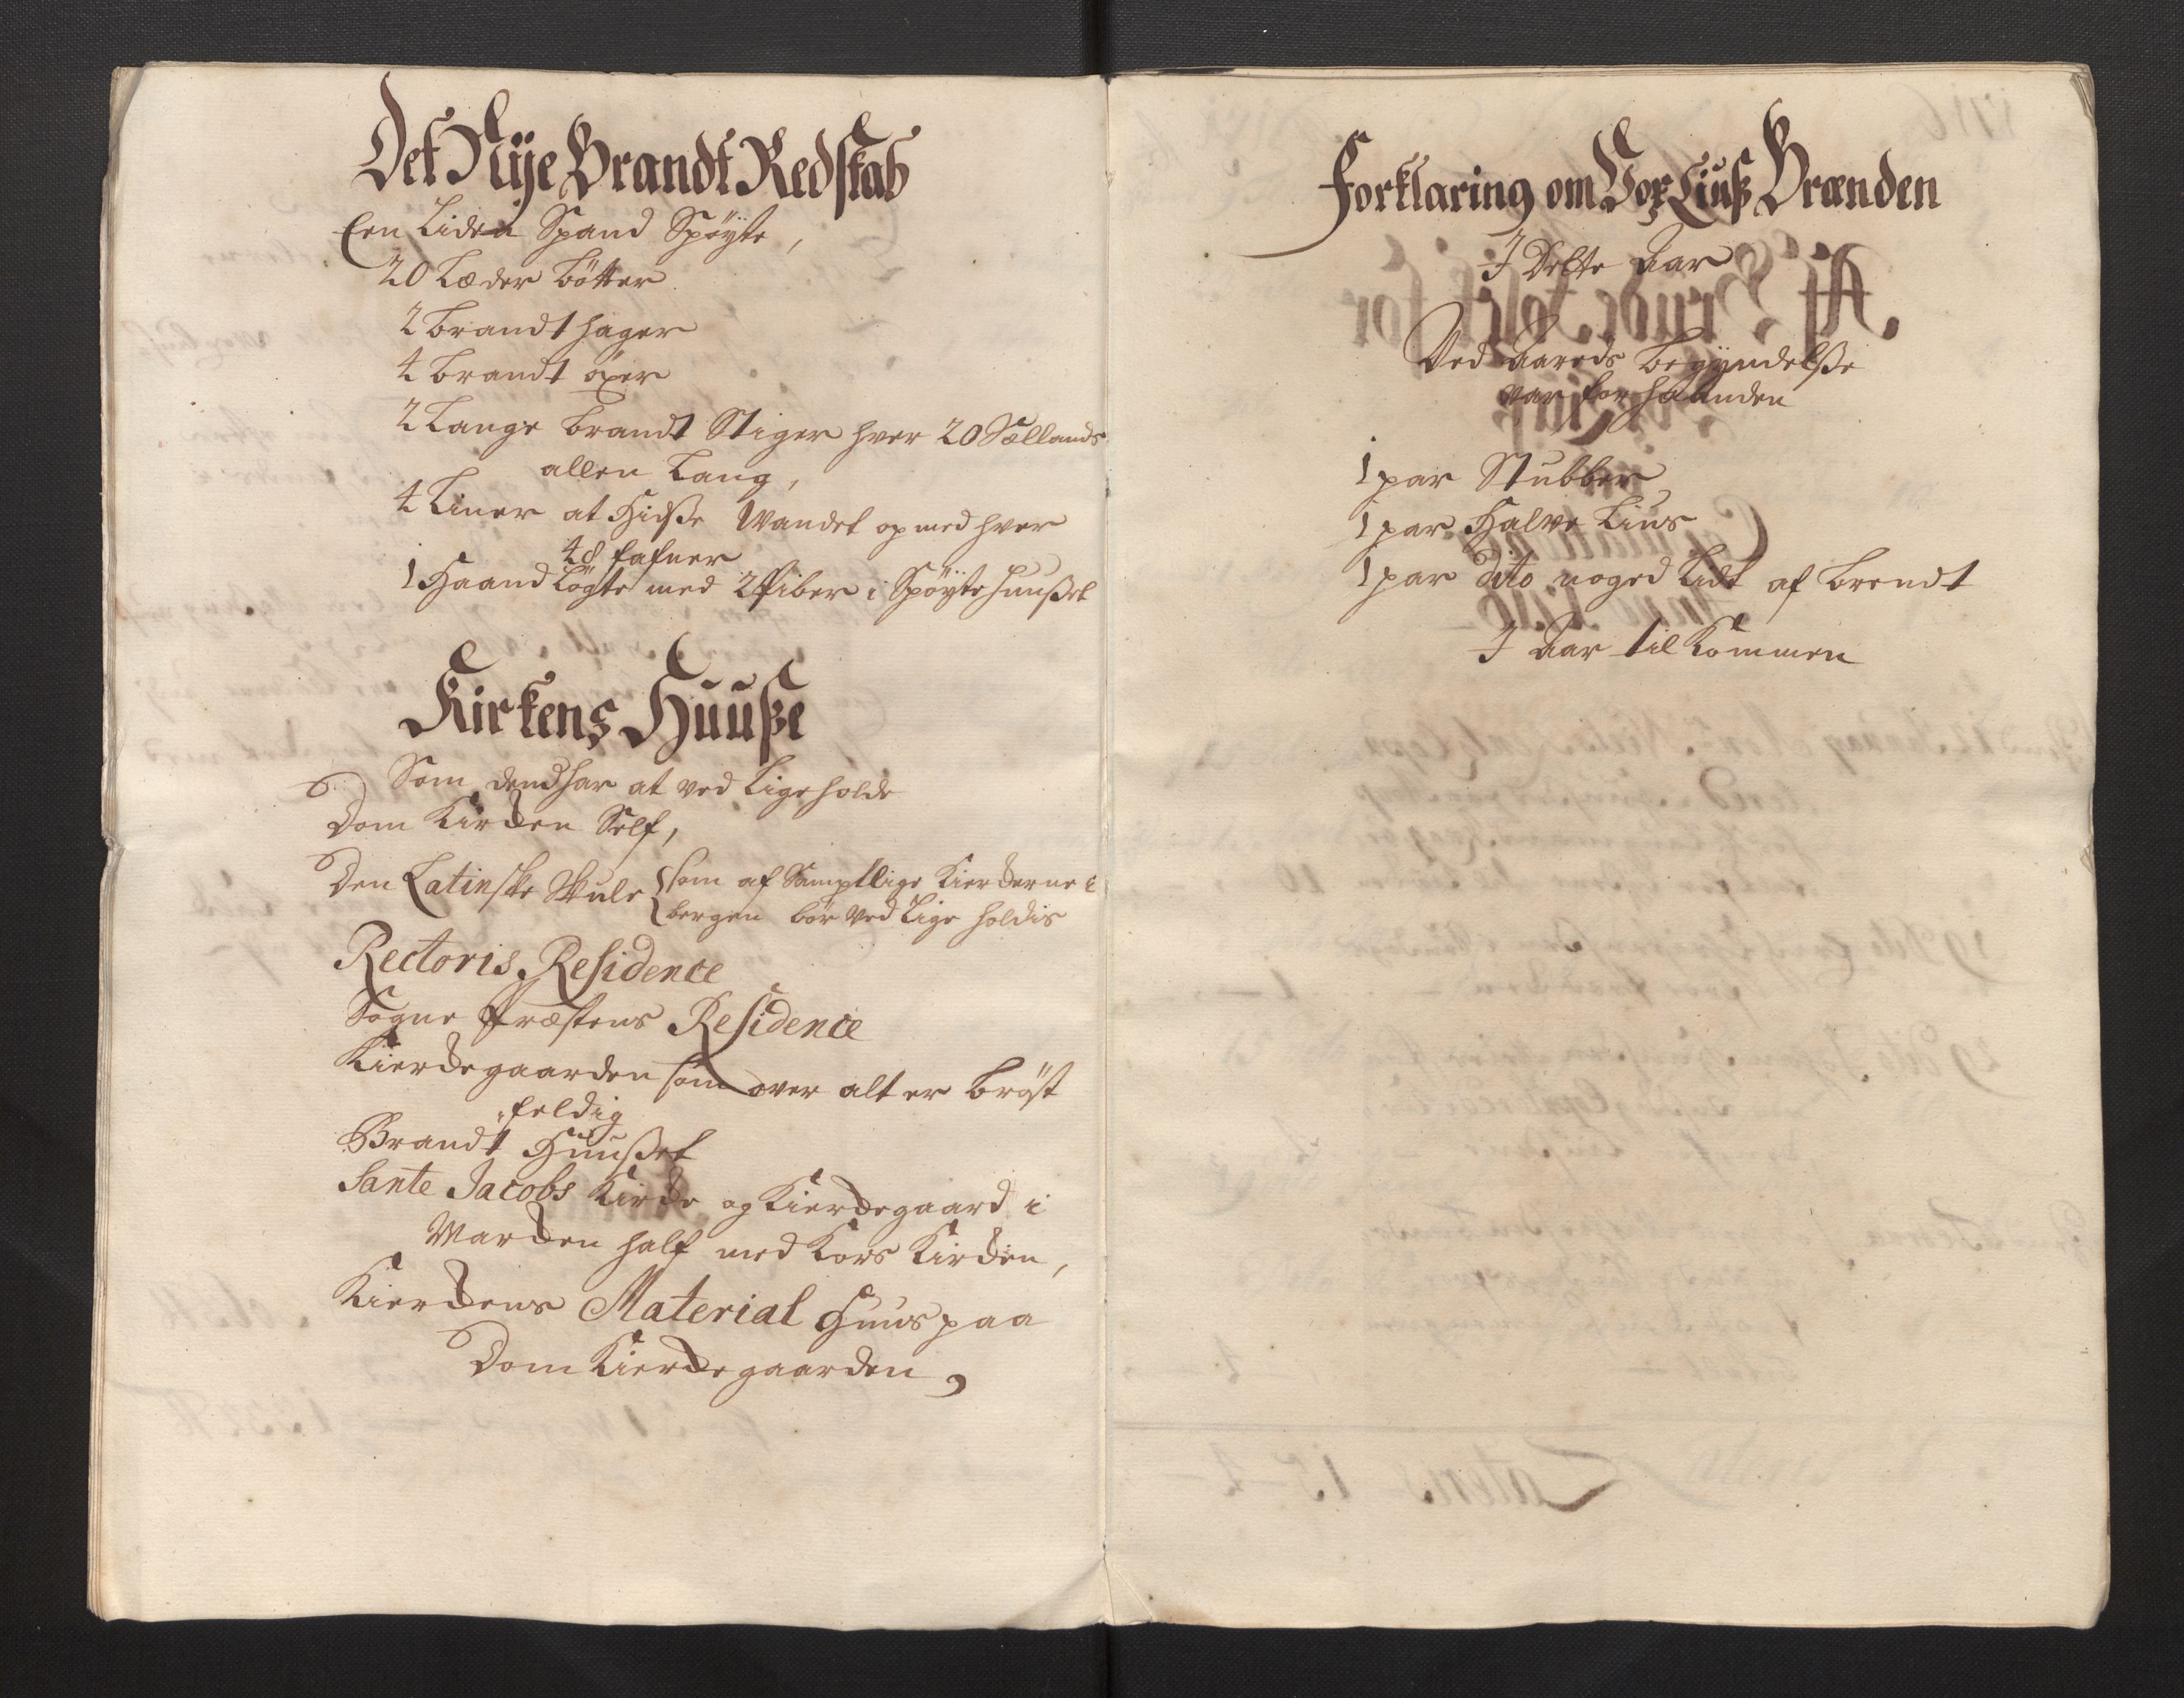 Det Nÿe Brandt Redskab
Een Liden Spand Spøyte,
20 Læder bøtter
2 brandt hager
4 brandt øxer
2 Lange brandt Stiger hver 20 Sællands
allen Lang,
4 Liner at Hidsße Wandet op med hver
48 fafner
1 Haand Løgte med 2 Piber i Spøyte huußet
Kirkens Huuße
Som dend har at ved Lige holde
Dom Kircken Self,
Den Latinske Skule som af Samptlige Kierckerne i
bergen bør ved Lige holdis
Rectoris Residence
Sogne Præstens Residence
Kierckegaarden som over alt er brøst
feldig
Brandt Huußet
Sante Jacobs Kircke og Kierckegaard i
Marcken half med Kors Kircken,
Kierckens Material Huus paa
Dom Kierckegaarden,
Forklaring om Vox Liuß Brænden
I Dette Aar
Ved Aareds begÿndelße
var for haanden
1 par Stubber
1 par Halve Lius
1 par dito noged Lidt af brendt
I Aar til Kommen